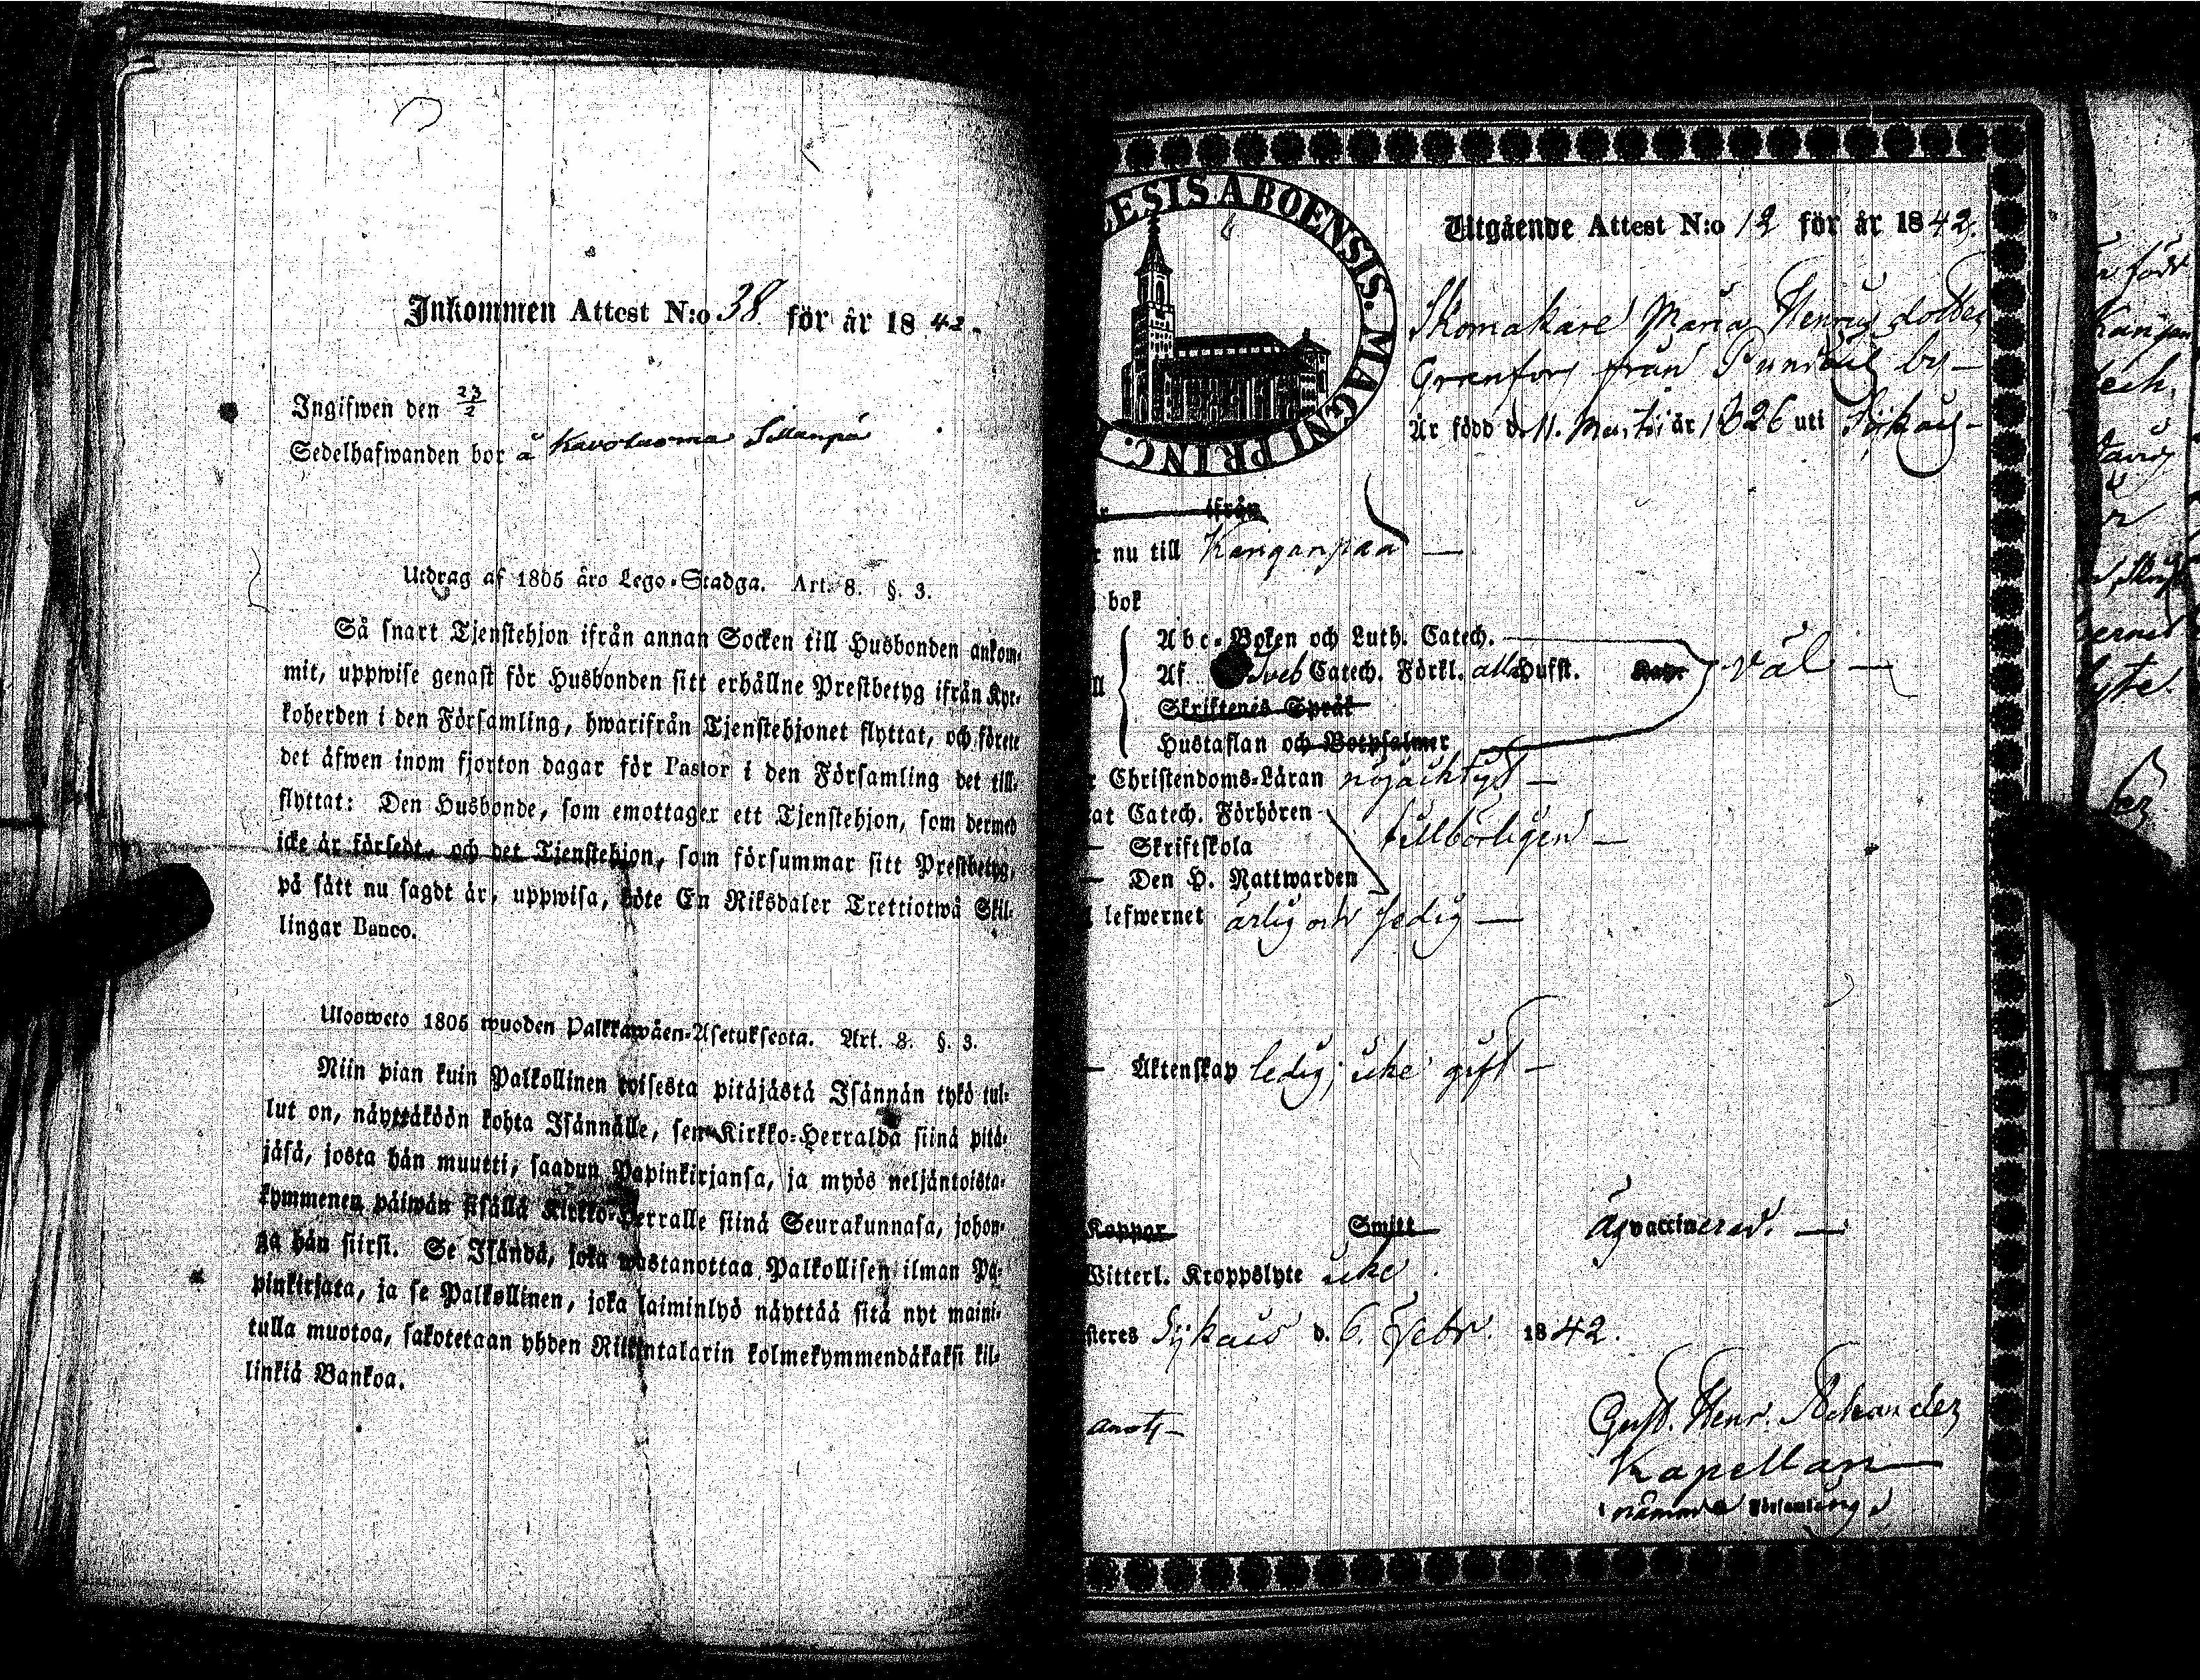 Inkommen Attest N:o 38 för år 1842.
Ingifwen den 23/2
Sedelhafwanden bor å Kavoluoma Sillanpä
Utdrag af 1805 års Lego-Stadga. Art. 8. §. 3.
Så snart Tjenstehjon ifrån annan Socken till Husbonden ankom-
mit, uppwise genast för Husbonden sitt erhållne Prestbetyg ifrån Kyr-
koherden i den Församling, hwarifrån Tjenstehjonet flyttat, och förete
det äfwen inom fjorton dagar för Pastor i den Församling det till-
flyttat: Den Husbonde, som emottager ett Tjenstehjon, som dermed
icke är försedt, och det Tjenstehjon, som försummar sitt Prestbetyg,
på sätt nu sagdt är, uppwisa, böte En Riksdaler Trettiotwå Skil-
lingar Banco.
Ulosweto 1805 wuoden Palkkawäen-Asetuksesta. Art. 8. §. 3.
Niin pian kuin Palkollinen toisesta pitäjästä Isännän tykö tul-
lut on, näyttäköön kohta Isännälle, sen Kirkko-Herralda siinä pitä-
jäsä, josta hän muutti, saadun Papinkirjansa, ja myös neljäntoista-
kymmenen päiwän sisällä Kirkko-Herralle siinä Seurakunnasa, johon-
ga hän siirsi. Se Isändä, joka wastanottaa Palkollisen ilman Pa-
pinkirjata, ja se Palkollinen, joka laiminlyö näyttää sitä nyt maini-
tulla muotoa, sakotetaan yhden Riikintalarin kolmekymmendäkaksi kil-
linkiä Bankoa.
ESIS ABOENSIS. MAGNI PRINC.
Utgående Attest N:o 12 för år 1842.
Skomakare Maria Henricsdotter
Granfors från by
Är född d. 11. Martii år 1826 uti Sijkais
ifrån
r nu till Kanganpää
i bok
Abc-Boken och Luth. Catech.
Af Sveb Catech. Förkl. alla Hufst. väl
Skriftenes Språk
Hustaflan och Botpsalmer
r Christendoms-Läran nöjacktigt
at Catech. Förhören
Skriftskola tillbörligen
Den H. Nattwarden
lefwernet ärlig och sedig
Äktenskap ledig, icke gift
Koppor Smitt Äg vaccinerad.
Witterl. Kroppslyte icke
steres Sijkais d. 6. Febr. 1842.
Gust. Henr.
Kapellan
i nämnde Församling